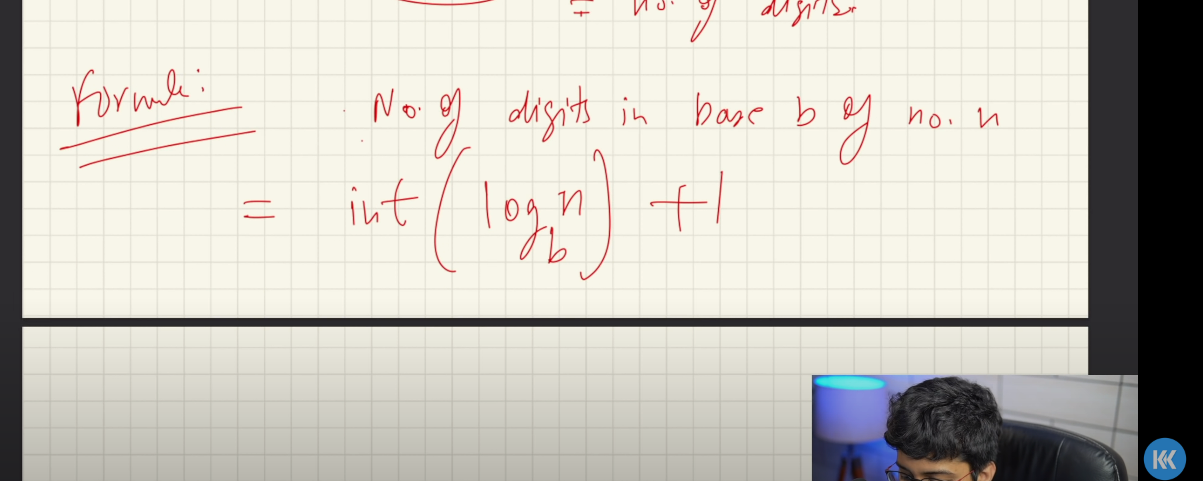 = no. of digits.
Formula:
No. of digits in base b of no. n
= int ( log_b n ) + 1